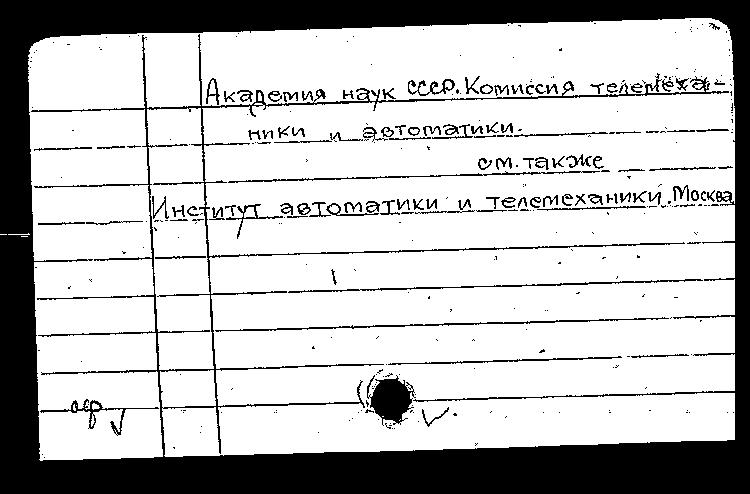 Академия наук СССР. Комиссия телемеха-
ники и автоматики.
см. также
Институт автоматики и телемеханики. Москва